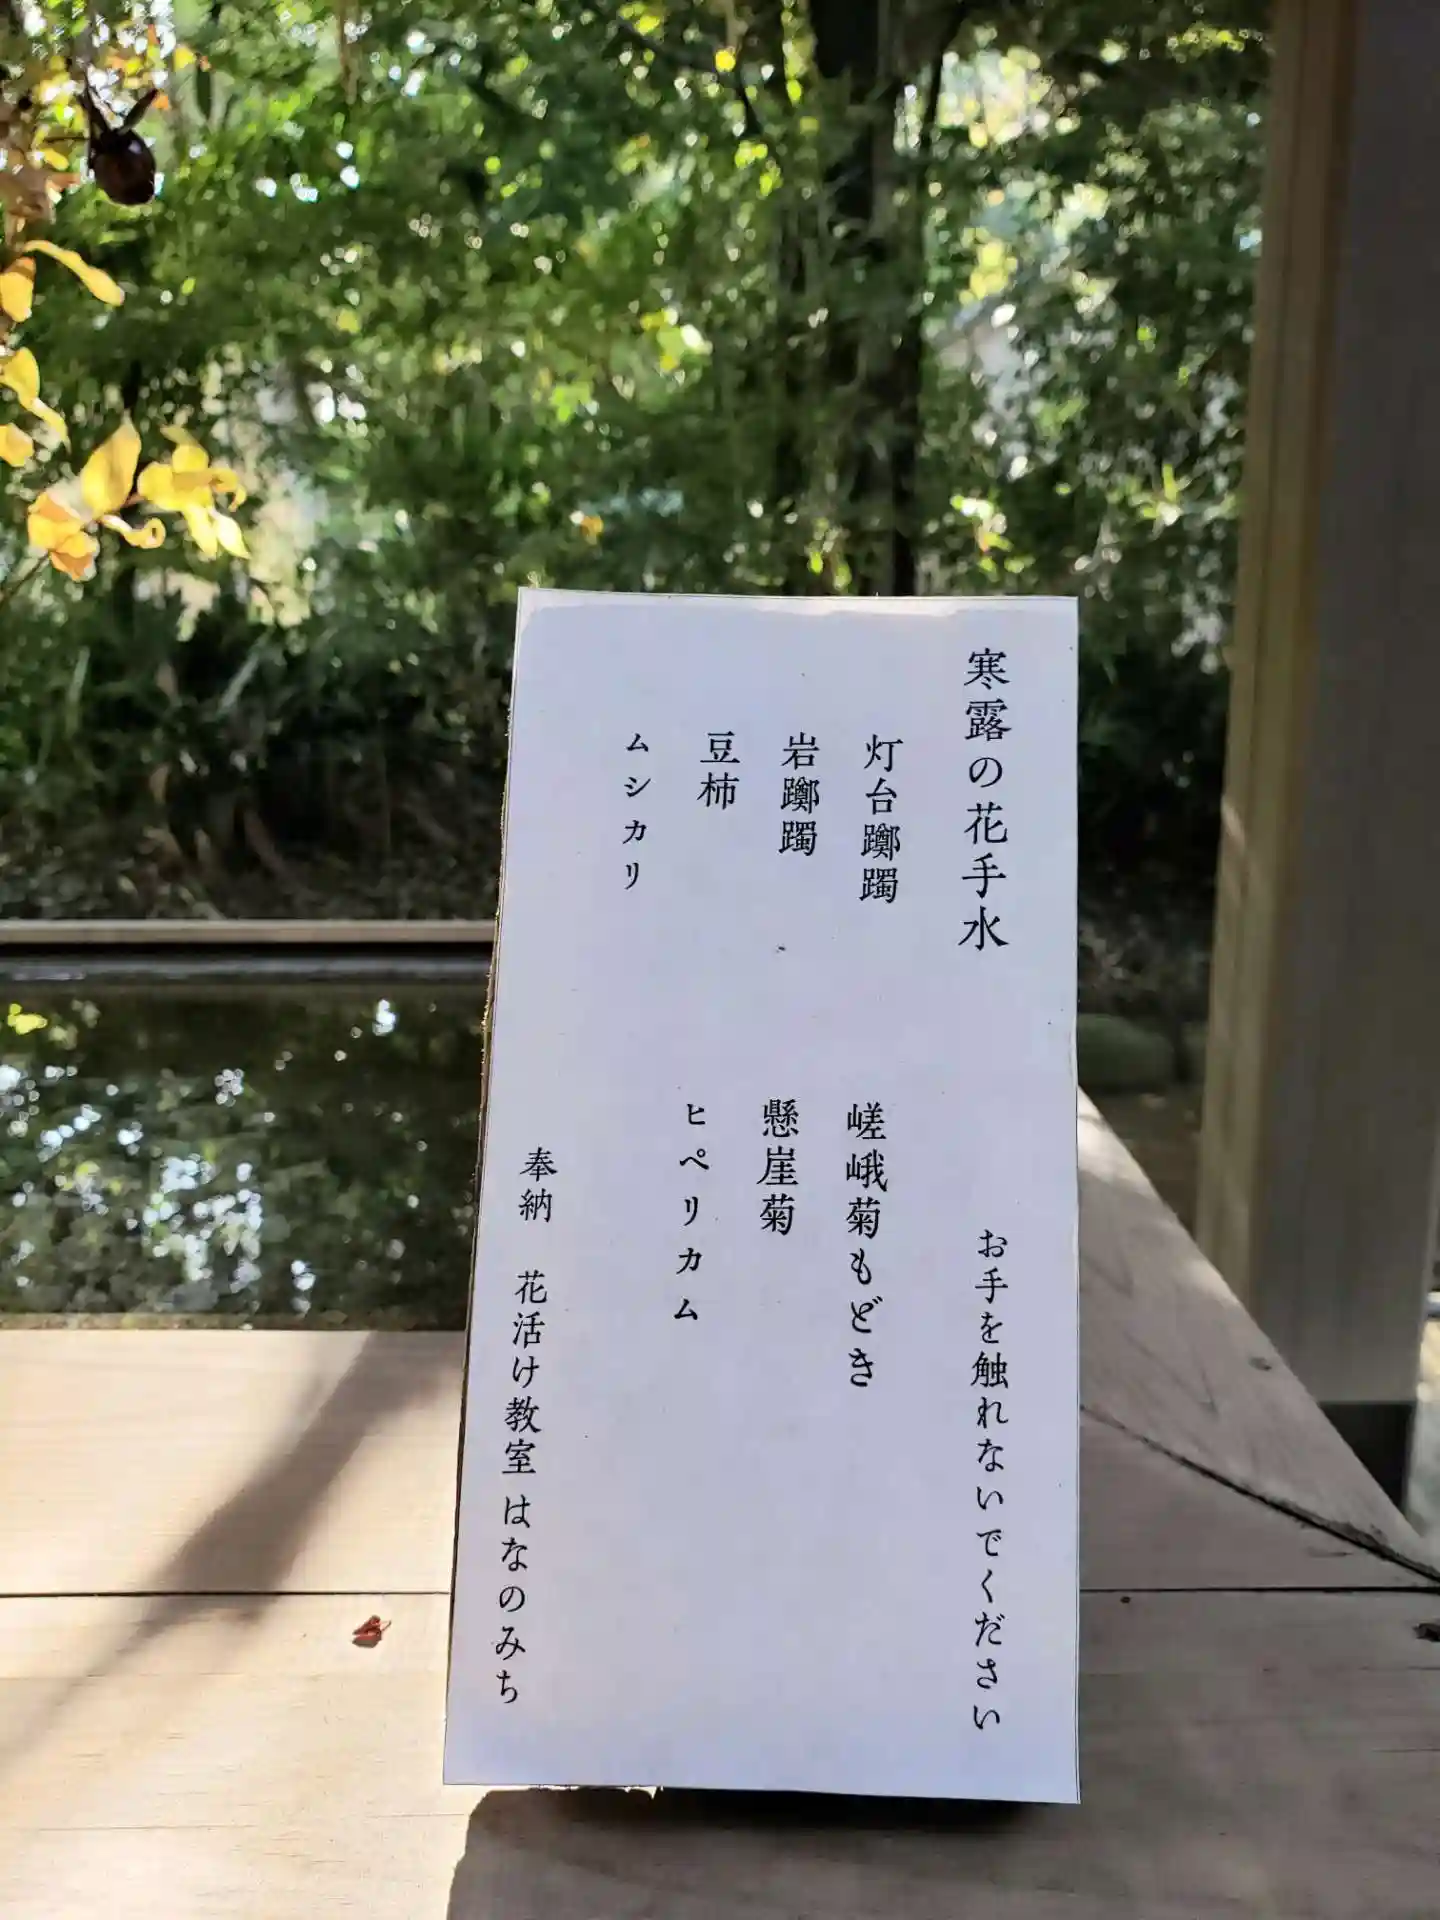 寒露の花手水
お手を触れないでください
灯台躑躅
岩躑躅
豆柿
ムシカリ
嵯峨菊もどき
懸崖菊
ヒペリカム
奉納 花活け教室 はなのみち